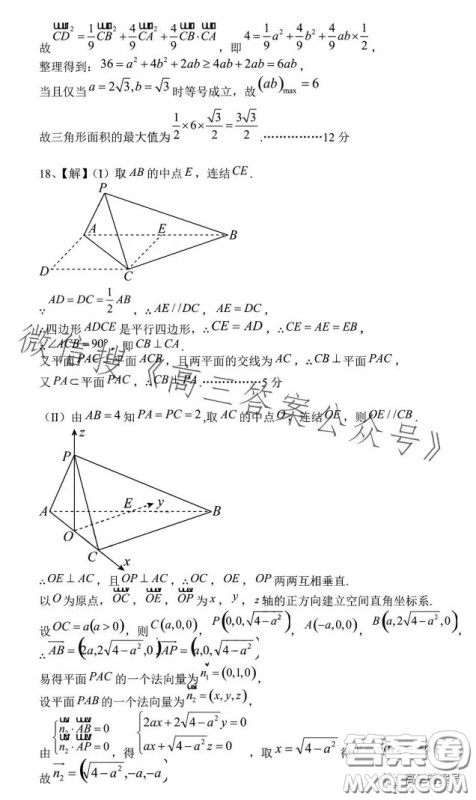 故 CD² = 1/9 CB² + 4/9 CA² + 4/9 CB·CA，即 4 = 1/9 a² + 4/9 b² + 4/9 ab × 1/2，
整理得到：36 = a² + 4b² + 2ab ≥ 4ab + 2ab = 6ab，
当且仅当 a = 2√3, b = √3 时等号成立，故 (ab)max = 6
故三角形面积的最大值为 1/2 × 6 × √3/2 = 3√3/2 .………………12 分
18、【解】(I) 取 AB 的中点 E，连结 CE.
P
A E B
D C
∵ AD = DC = 1/2 AB，∴ AE // DC，AE = DC，
∴四边形 ADCE 是平行四边形，∴ CE = AD，∴ CE = AE = EB，
∴ ∠ACB = 90°，即 CB ⊥ CA.
又平面 PAC ⊥ 平面 ACB，且两平面的交线为 AC，∴ CB ⊥ 平面 PAC，
又 PA ⊂ 平面 PAC，∴ CB ⊥ PA.………………5 分
(II) 由 AB = 4 知 PA = PC = 2，取 AC 的中点 O，连结 OE，则 OE // CB.
z
P
E y
A B
O
C
x
∴ OE ⊥ AC，且 OP ⊥ AC，∴ OC，OE，OP 两两互相垂直.
以 O 为原点，OC，OE，OP 为 x，y，z 轴的正方向建立空间直角坐标系.
设 OC = a(a > 0)，则 C(a,0,0)，P(0,0,√(4-a²))，A(-a,0,0)，B(a,2√(4-a²),0)，
∴ AB = (2a,2√(4-a²),0), AP = (a,0,√(4-a²))
易得平面 PAC 的一个法向量为 n₁ = (0,1,0)，
设平面 PAB 的一个法向量为 n₂ = (x,y,z)，
由 { n₂·AB = 0, n₂·AP = 0，得 { 2ax + 2√(4-a²) y = 0, ax + √(4-a²) z = 0，取 x = √(4-a²) 得
故 n₂ = (√(4-a²),-a,-a)
微信搜《高三答案公众号》
答案圈
MXQE.COM